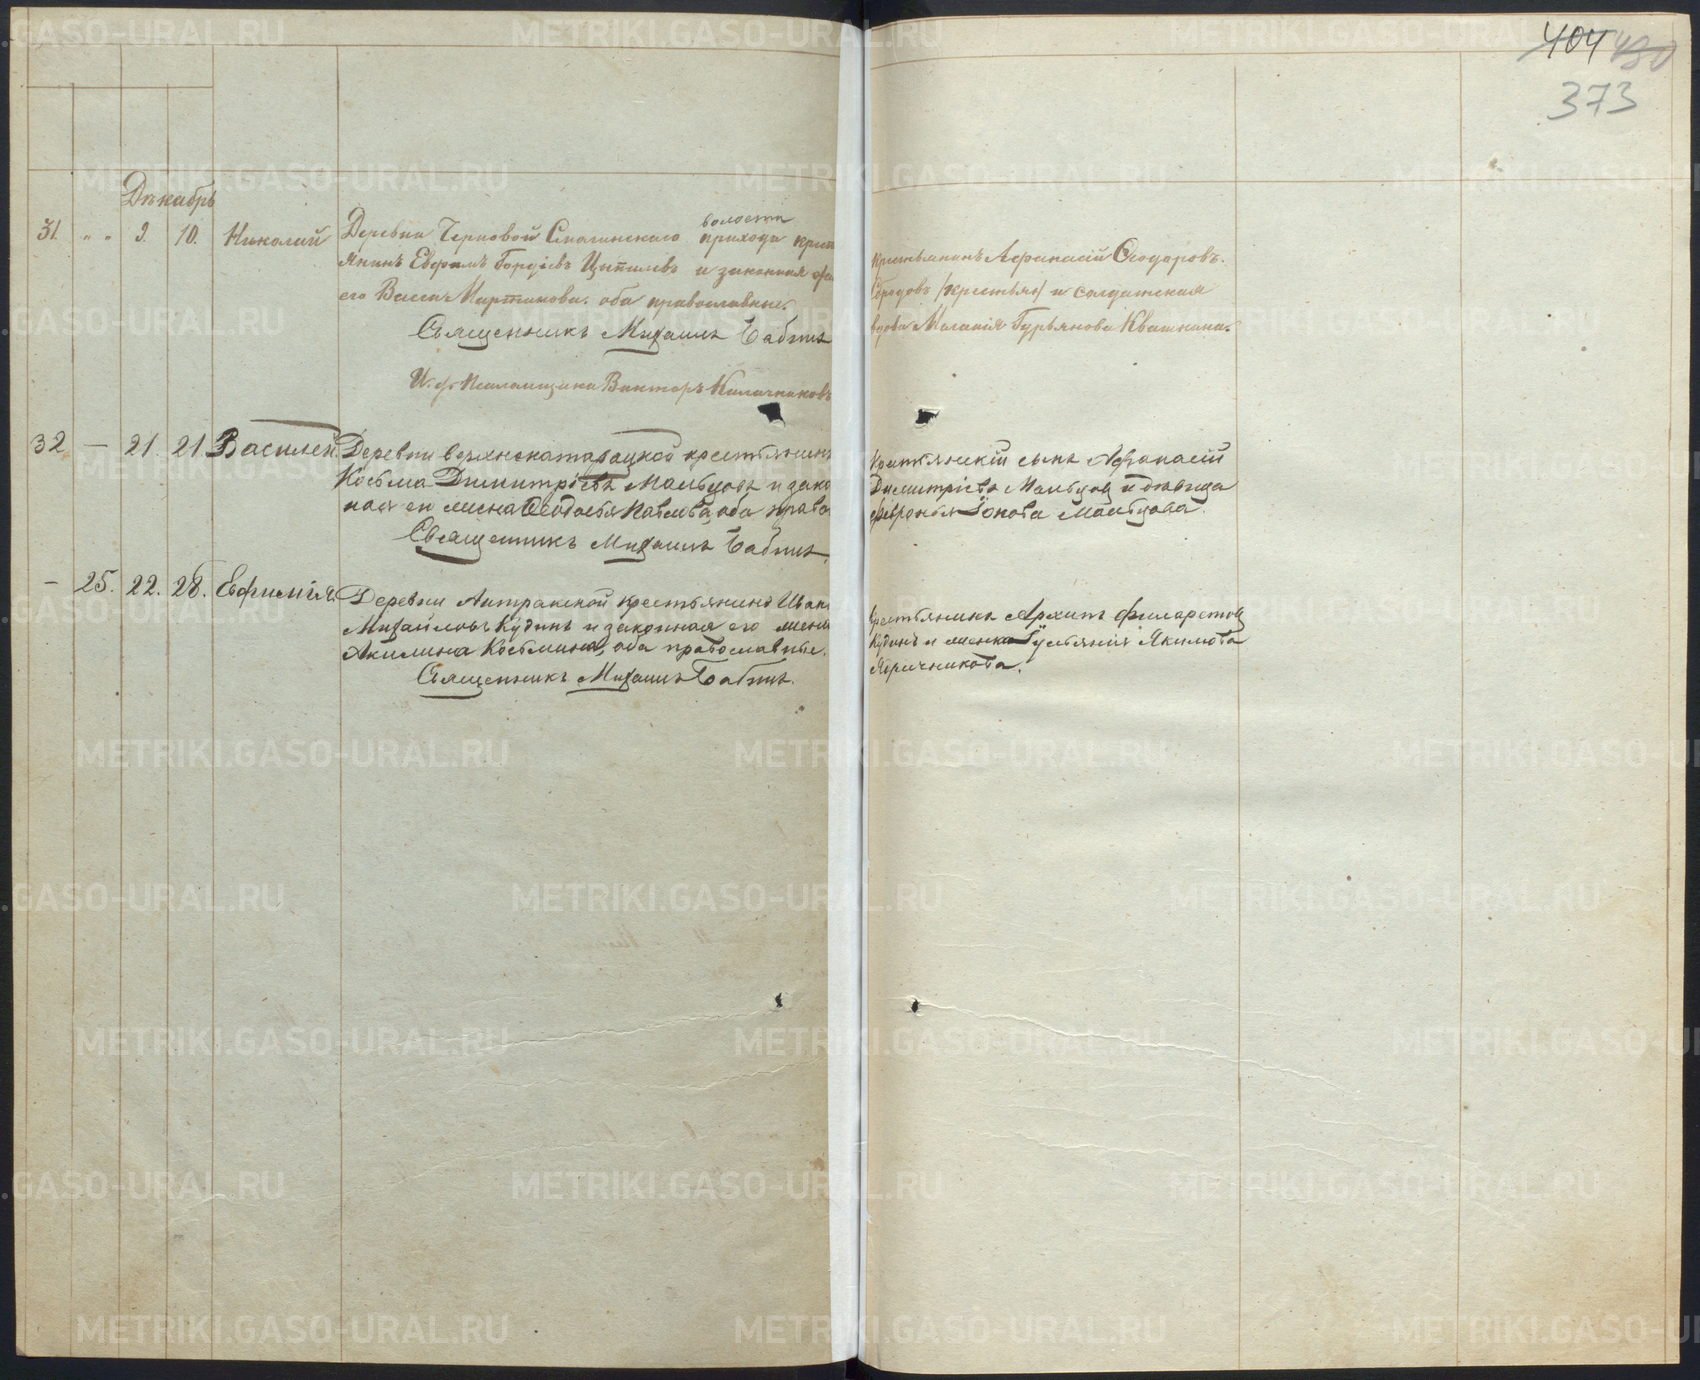 404 480
373
Декабрь
31. " " 9. 10. Николай Деревни Черновой Спасинскаго волости прихода крест
янинъ Евфимъ Гордіевъ Ципилевъ и законная
его Васса Мартинова. оба православные.
Священникъ Михаилъ Бабинъ
И. д. Псаломщика Викторъ Калачниковъ
крестьянинъ Афанасій Ѳеодоровъ.
(крестьян) и солдатская
вдова Маланія Гурьянова Квашнина.
32 — 21. 21 Василей. Деревни верхнекатарацкой крестьянинъ
Косьма Димитріевъ Мальцовъ и зако
ная ею жена Ѳеодосья Павлова, оба право
Священникъ Михаилъ Бабинъ
Крестьянскій сынъ Афанасій
Димитріевъ Мальцовъ и дѣвица
Февронья Іонова Мальцова.
— 25. 22. 28. Евфимія. Деревни Антракской крестьянинъ Иван
Михайловъ Кудинъ и законная его жена
Акилина Косьмина, оба православные.
Священникъ Михаилъ Бабинъ.
крестьянинъ Архипъ Филаретовъ
Кудинъ и женка Іульянія Якимова
METRIKI.GASO-URAL.RU